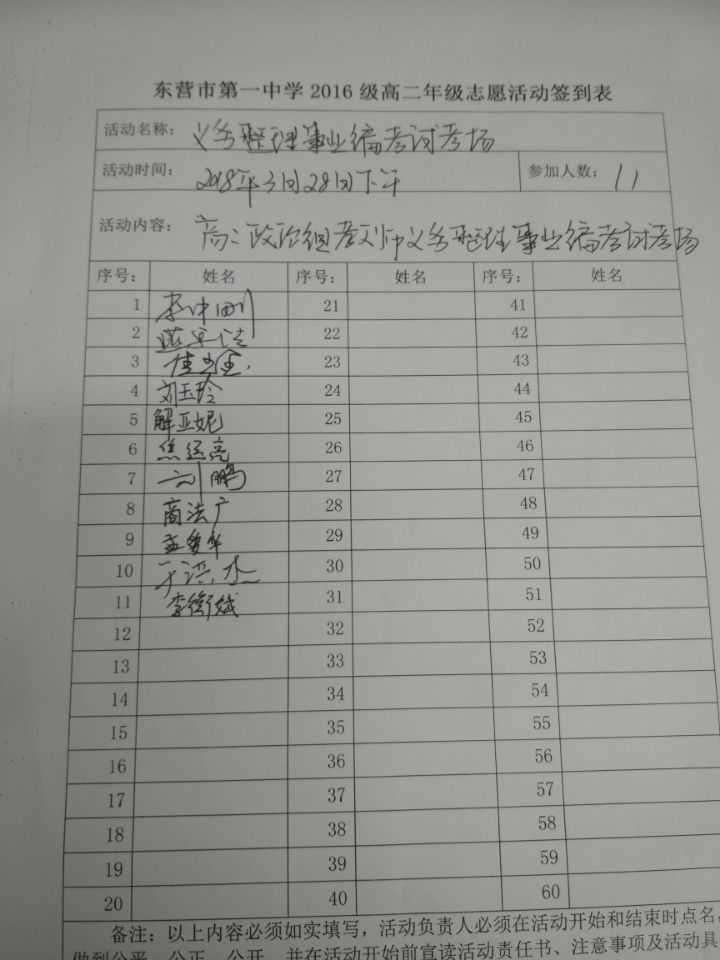 东营市第一中学2016级高二年级志愿活动签到表
活动名称： 义务整理事业编考试考场
活动时间： 2018年3月28日下午 参加人数： 11
活动内容： 高二政治组老师义务整理事业编考试考场
序号： 姓名 序号： 姓名 序号： 姓名
1 21 41
2 22 42
3 23 43
4 刘玉玲 24 44
5 解亚妮 25 45
6 焦廷亮 26 46
7 刘鹏 27 47
8 商法广 28 48
9 29 49
10 30 50
11 李衡斌 31 51
12 32 52
13 33 53
14 34 54
15 35 55
16 36 56
17 37 57
18 38 58
19 39 59
20 40 60
备注：以上内容必须如实填写，活动负责人必须在活动开始和结束时点名，
做到公平、公正、公开，并在活动开始前宣读活动责任书、注意事项及活动具